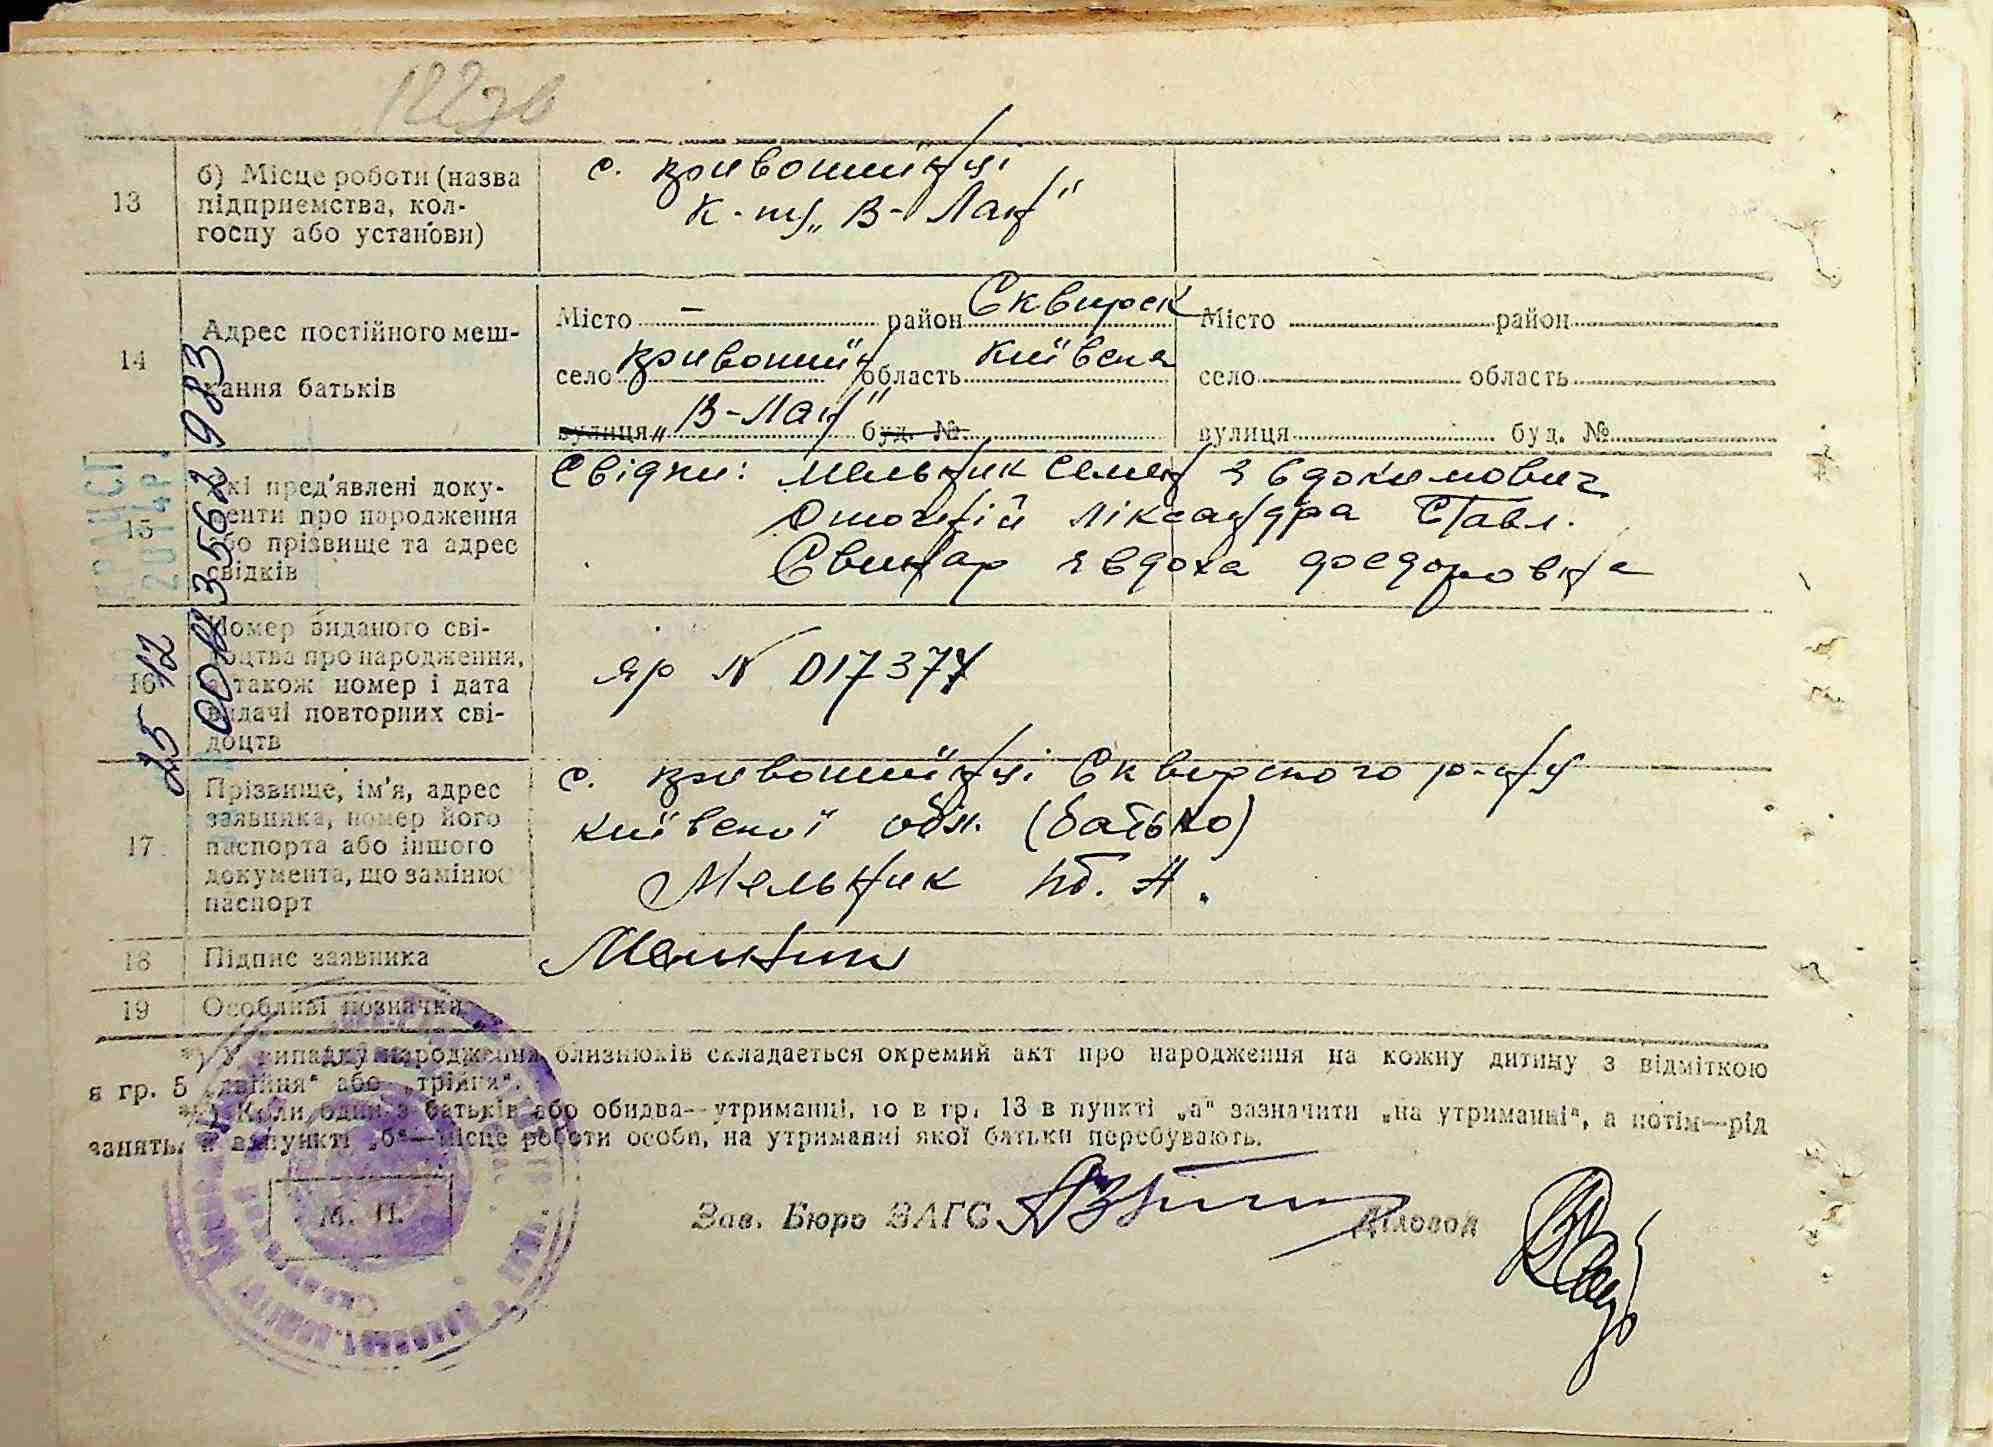 13
б) Місце роботи (назва
підприємства, кол-
госпу або установи)
с. кривошиїнці
к-т „В-Лан"
14
Адрес постійного меш-
кання батьків
Місто – район Сквирськ
село кривошиїн область київська
вулиця „В-Лан" буд. №
Місто район
село область
вулиця буд. №
15
які пред'явлені доку-
менти про народження
або прізвище та адрес
свідків
Свідки: мельник семен явдокимович
ліксандра
Свинар явдоха федоровна
16
Номер виданого сві-
доцтва про народження,
а також номер і дата
видачі повторних сві-
доцтв
яр N 017377
25 12 2014р.
00113562 983
17
Прізвище, ім'я, адрес
заявника, номер його
паспорта або іншого
документа, що замінює
паспорт
с. кривошиїнці Сквирського р-ну
київської обл. (батько)
Мельник
18
Підпис заявника
Мельник
19
Особливі позначки
*) У випадку народження близнюків складається окремий акт про народження на кожну дитину з відміткою
в гр. 5 „двійня" або „трійня".
**) Коли один з батьків або обидва—утриманці, то в гр. 13 в пункті „а" зазначити „на утриманні", а потім—рід
занять, а в пункті „б"—місце роботи особи, на утриманні якої батьки перебувають.
М. П.
Зав. Бюро ЗАГС
Діловод